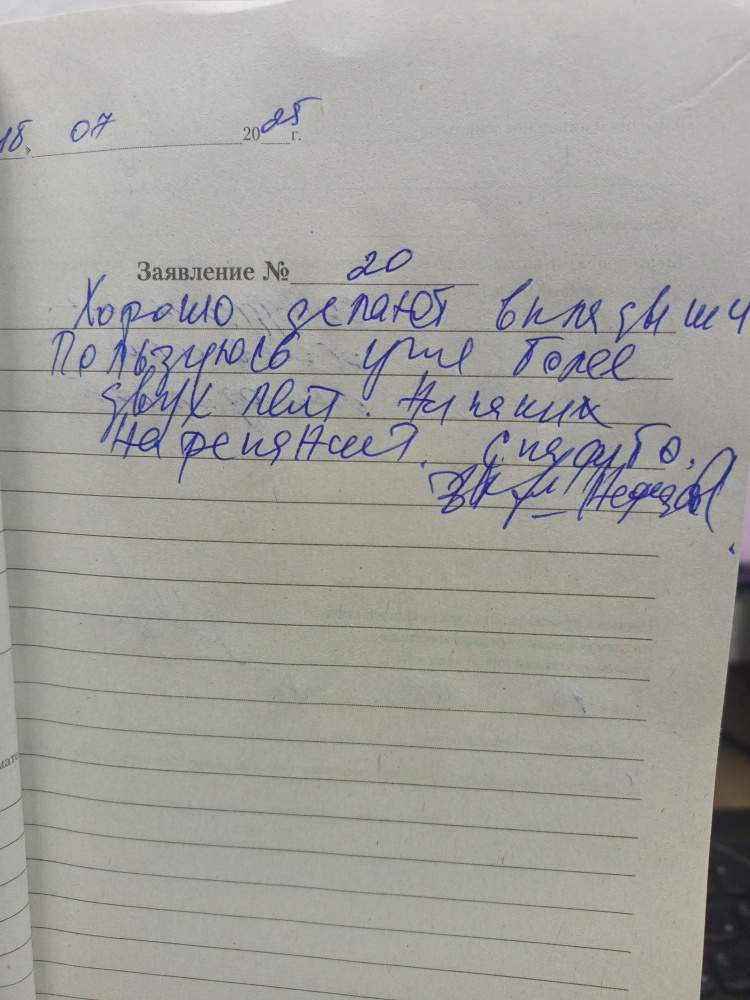 18. 07 2025 г.
Заявление № 20
Хорошо делают вкладыши
Пользуюсь уже более
двух лет. Никаких
нареканий. Спасибо.